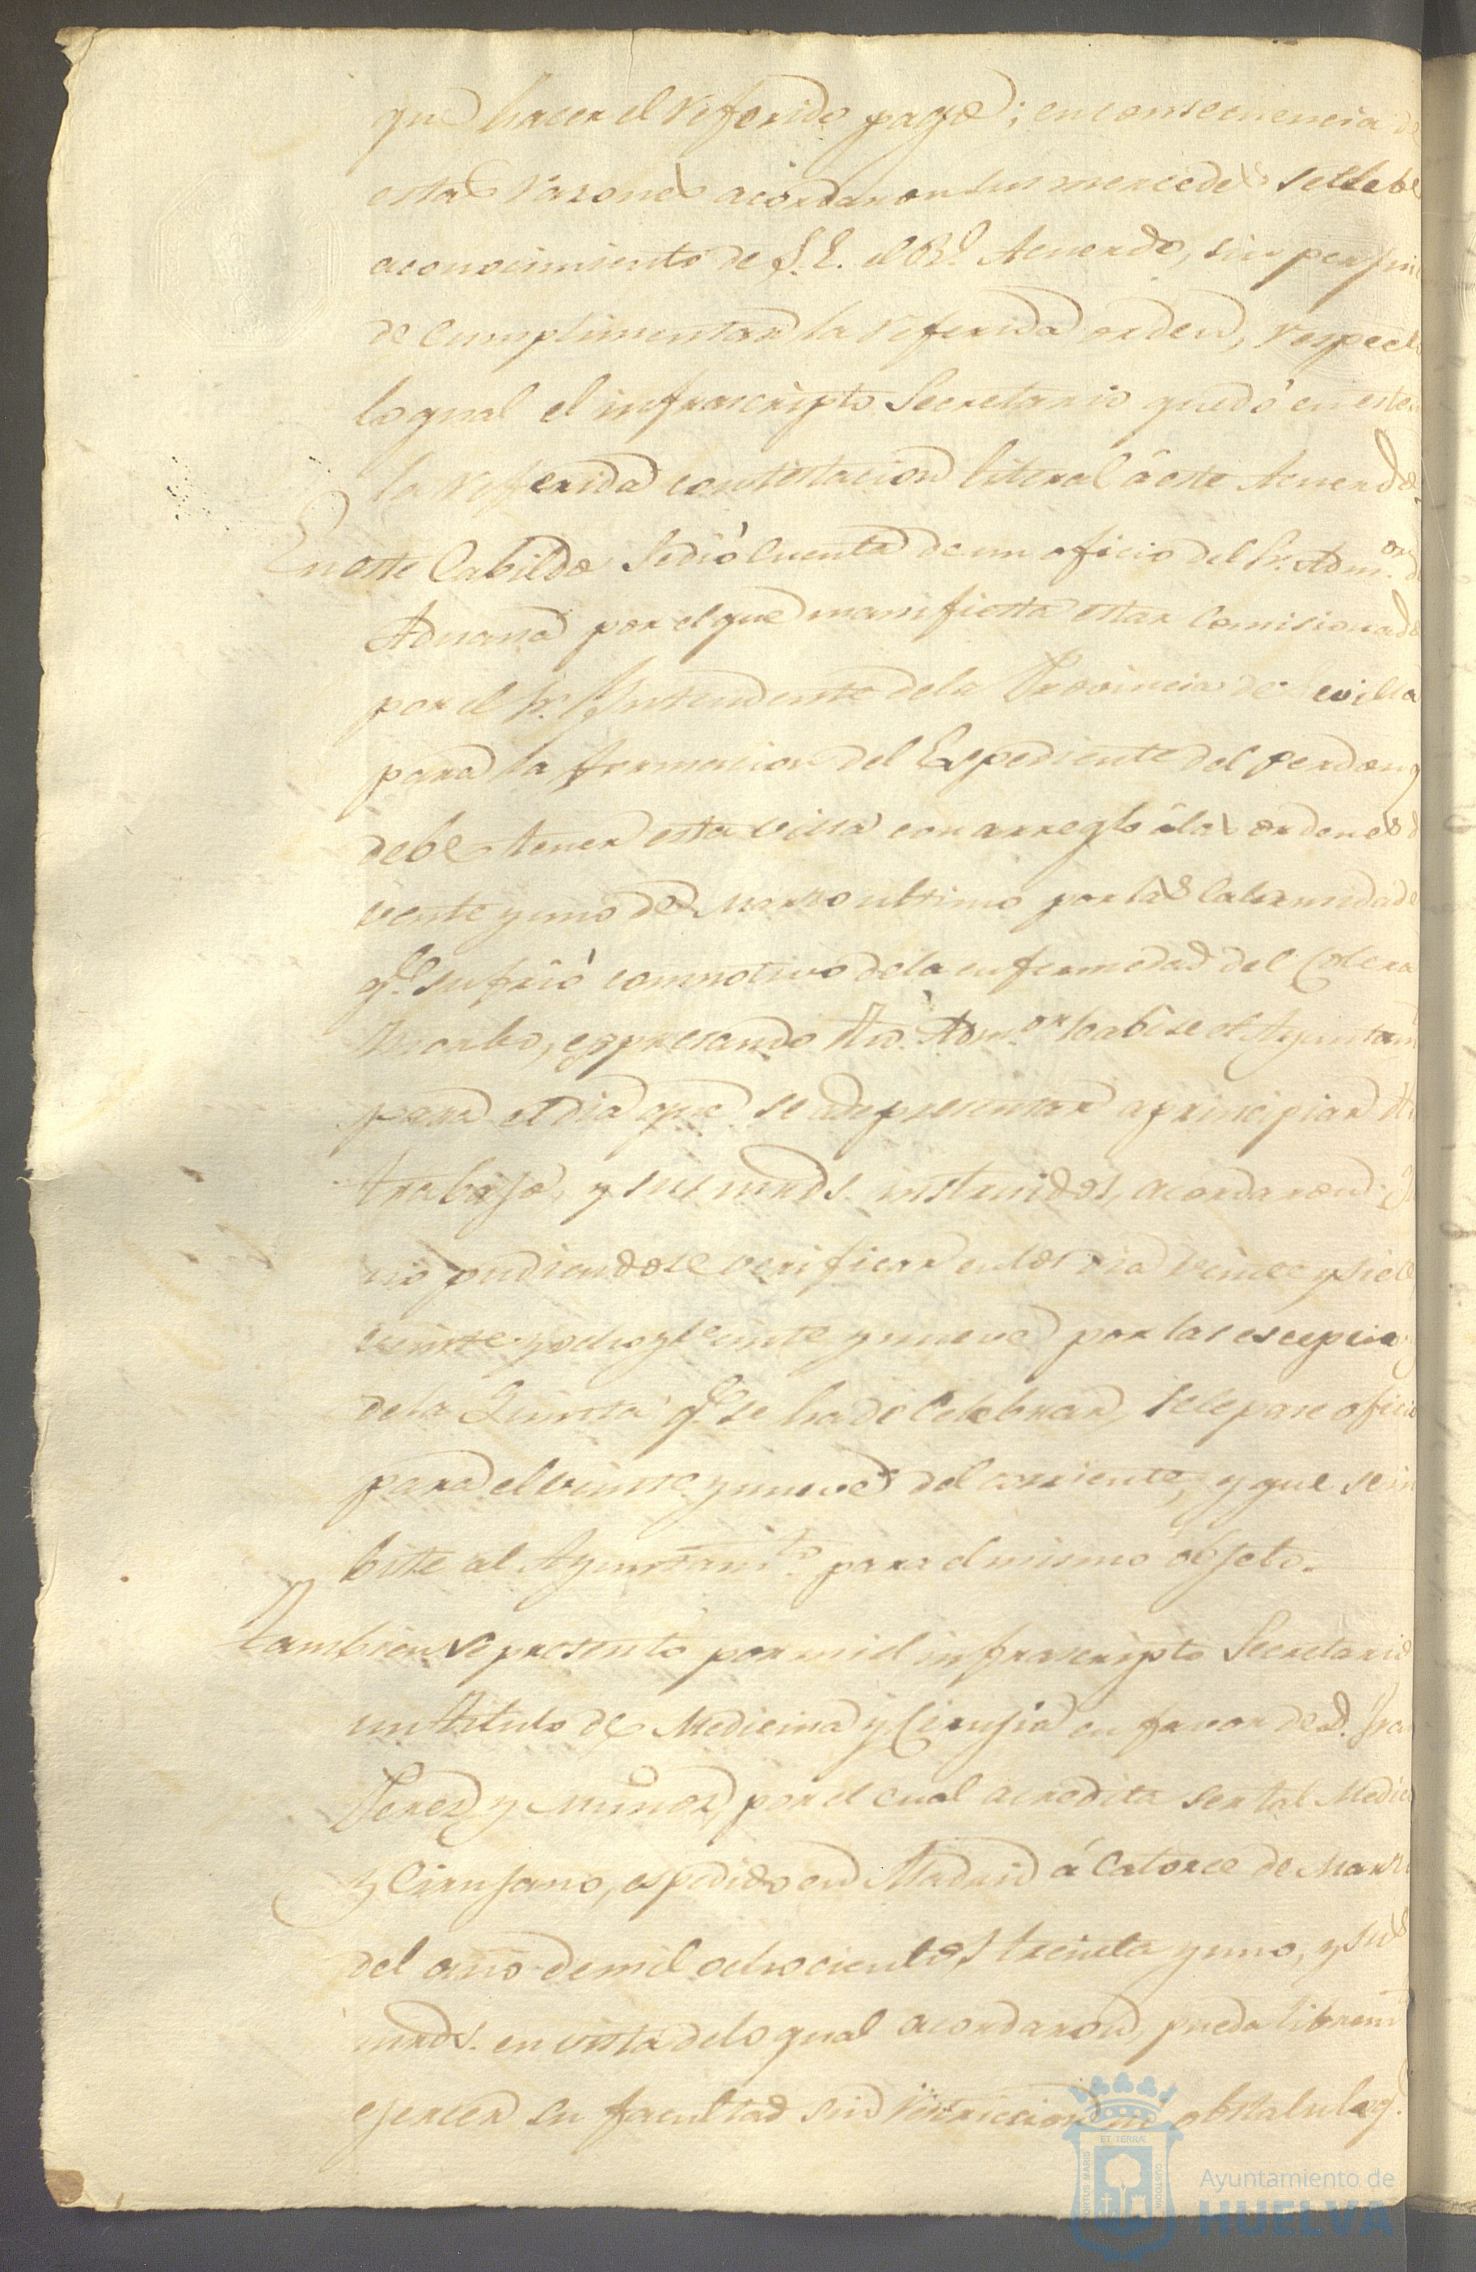 que hacer el referido pago; en consecuencia de
estas razones acordaron sus mercedes se llebe
a conocimiento de S. E. el Rl. Acuerdo, sin perjui
de cumplimentar la referida orden, respecto
lo qual el infrascripto Secretario quedó en esten
la referida contestacion literal á este Acuerdo.
En este Cabildo se dió cuenta de un oficio del Sr. Admor. de
Aduana por el que manifiesta estar comisionado
por el Sr. Yntendente de la Provincia de Sevilla
para la formacion del Espediente del perdon q
debe tener esta villa con arreglo á las ordenes d
veinte y uno de Marzo ultimo por las calamidades
qe. sufrió con motivo de la enfermedad del Colera
Morbo, espresando dho. Admor. se abise al Ayuntam
para el dia que se a de presentar a principiar dh
trabajo, y sus mrds. instruidos, acordaron: Q
no pudiendose verificar en los dia veinte y siete
veinte y ocho y veinte y nueve por las escepcio
de la Quinta qe. se ha de celebrar, se le pase oficio
para el veinte y nueve del corriente, y que se in
bite al Ayuntamto. para el mismo objeto.
Tambien se presentó por mi el infrascripto Secretario
un titulo de Medicina y Cirujia en favor de D. Fran
Perez y Muñoz, por el cual acredita ser tal Medico
y Cirujano, espedido en Madrid á catorce de Marzo
del año de mil ochocientos treinta y uno, y sus
mrds. en vista de lo qual acordaron, pueda libremte
ejercer su facultad sin restriccion ni obstaculo q.
PORTUS MARIS
ET TERRÆ
CUSTODIA
Ayuntamiento de
HUELVA